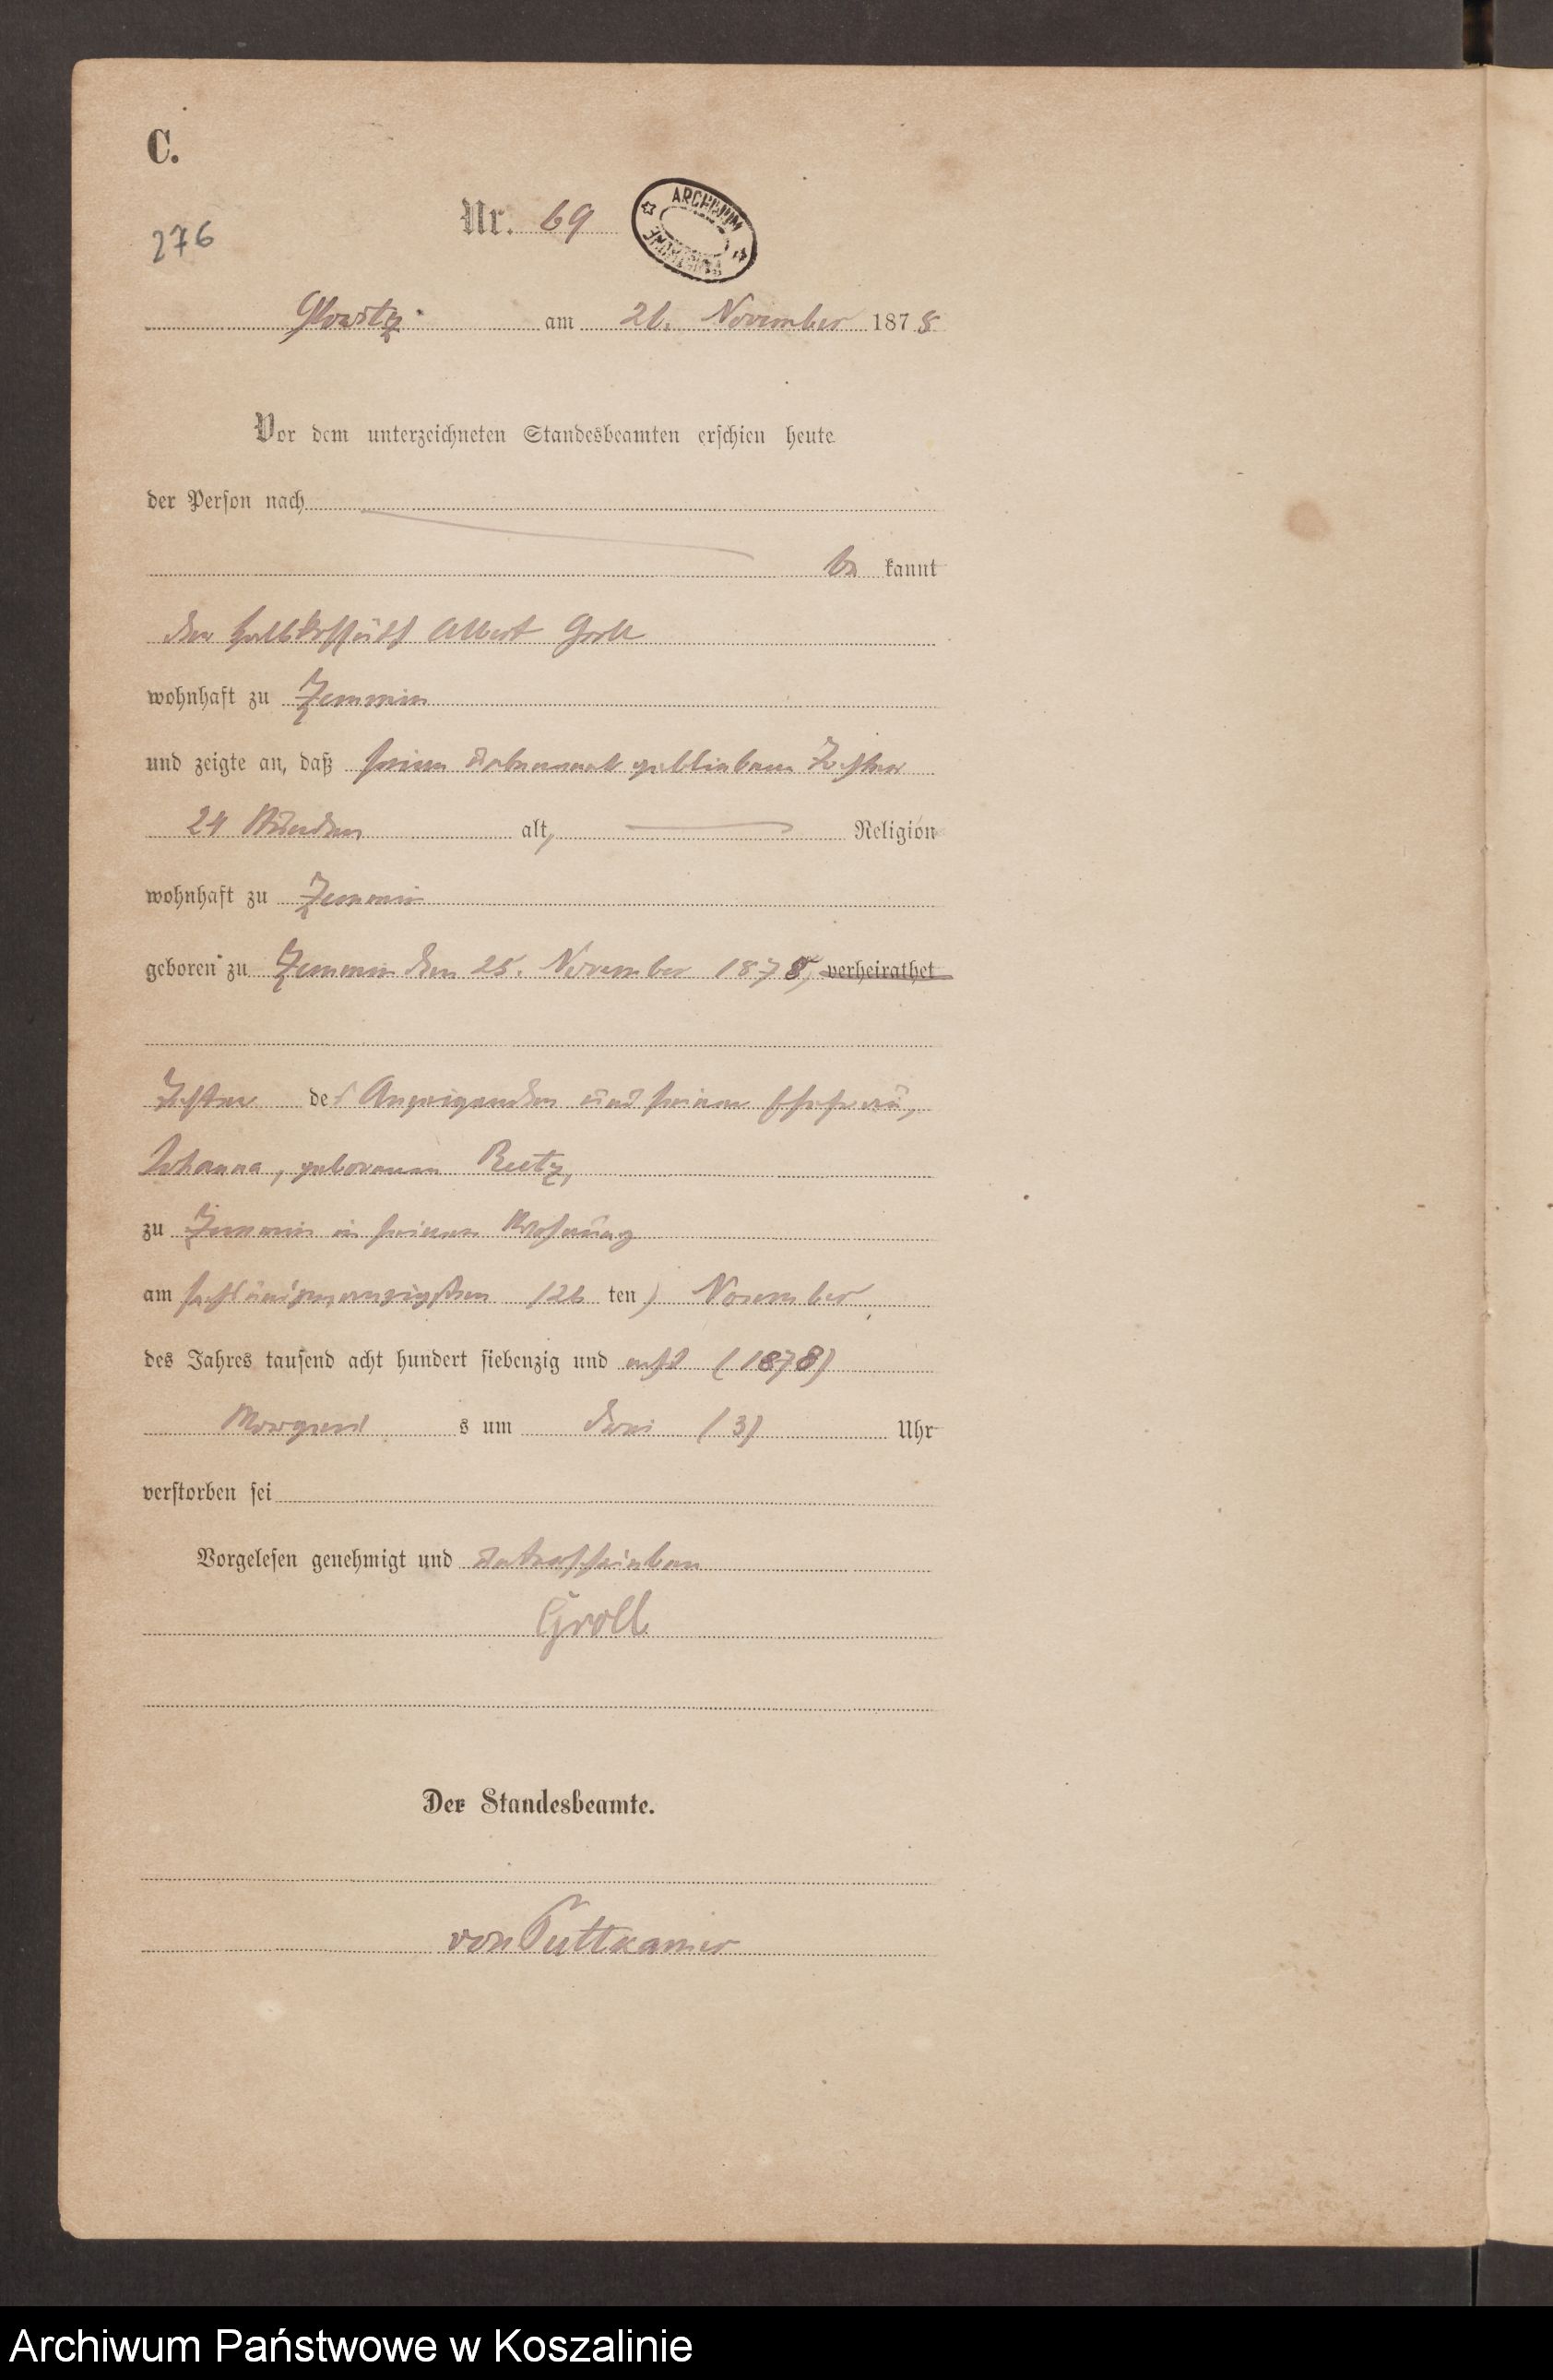 C.
276
Nr. 69
ARCHIWUM
Glowitz am 26. November 1878
Vor dem unterzeichneten Standesbeamten erschien heute
der Person nach
be kannt
der Halbkossäth Albert Groll
wohnhaft zu Zemmin
und zeigte an, daß seine unbenannt gebliebene Tochter
24 Stunden alt, Religion
wohnhaft zu Zemmin
geboren zu Zemmin den 25. November 1878, verheirathet
Tochter des Anzeigenden und seiner Ehefrau,
Johanna, geborenen Reetz,
zu Zemmin in seiner Wohnung
am sechsundzwanzigsten (26 ten) November
des Jahres tausend acht hundert siebenzig und acht (1878)
Morgens um drei (3) Uhr
verstorben sei
Vorgelesen genehmigt und unterschrieben
Groll
Der Standesbeamte.
von Puttkamer
Archiwum Państwowe w Koszalinie